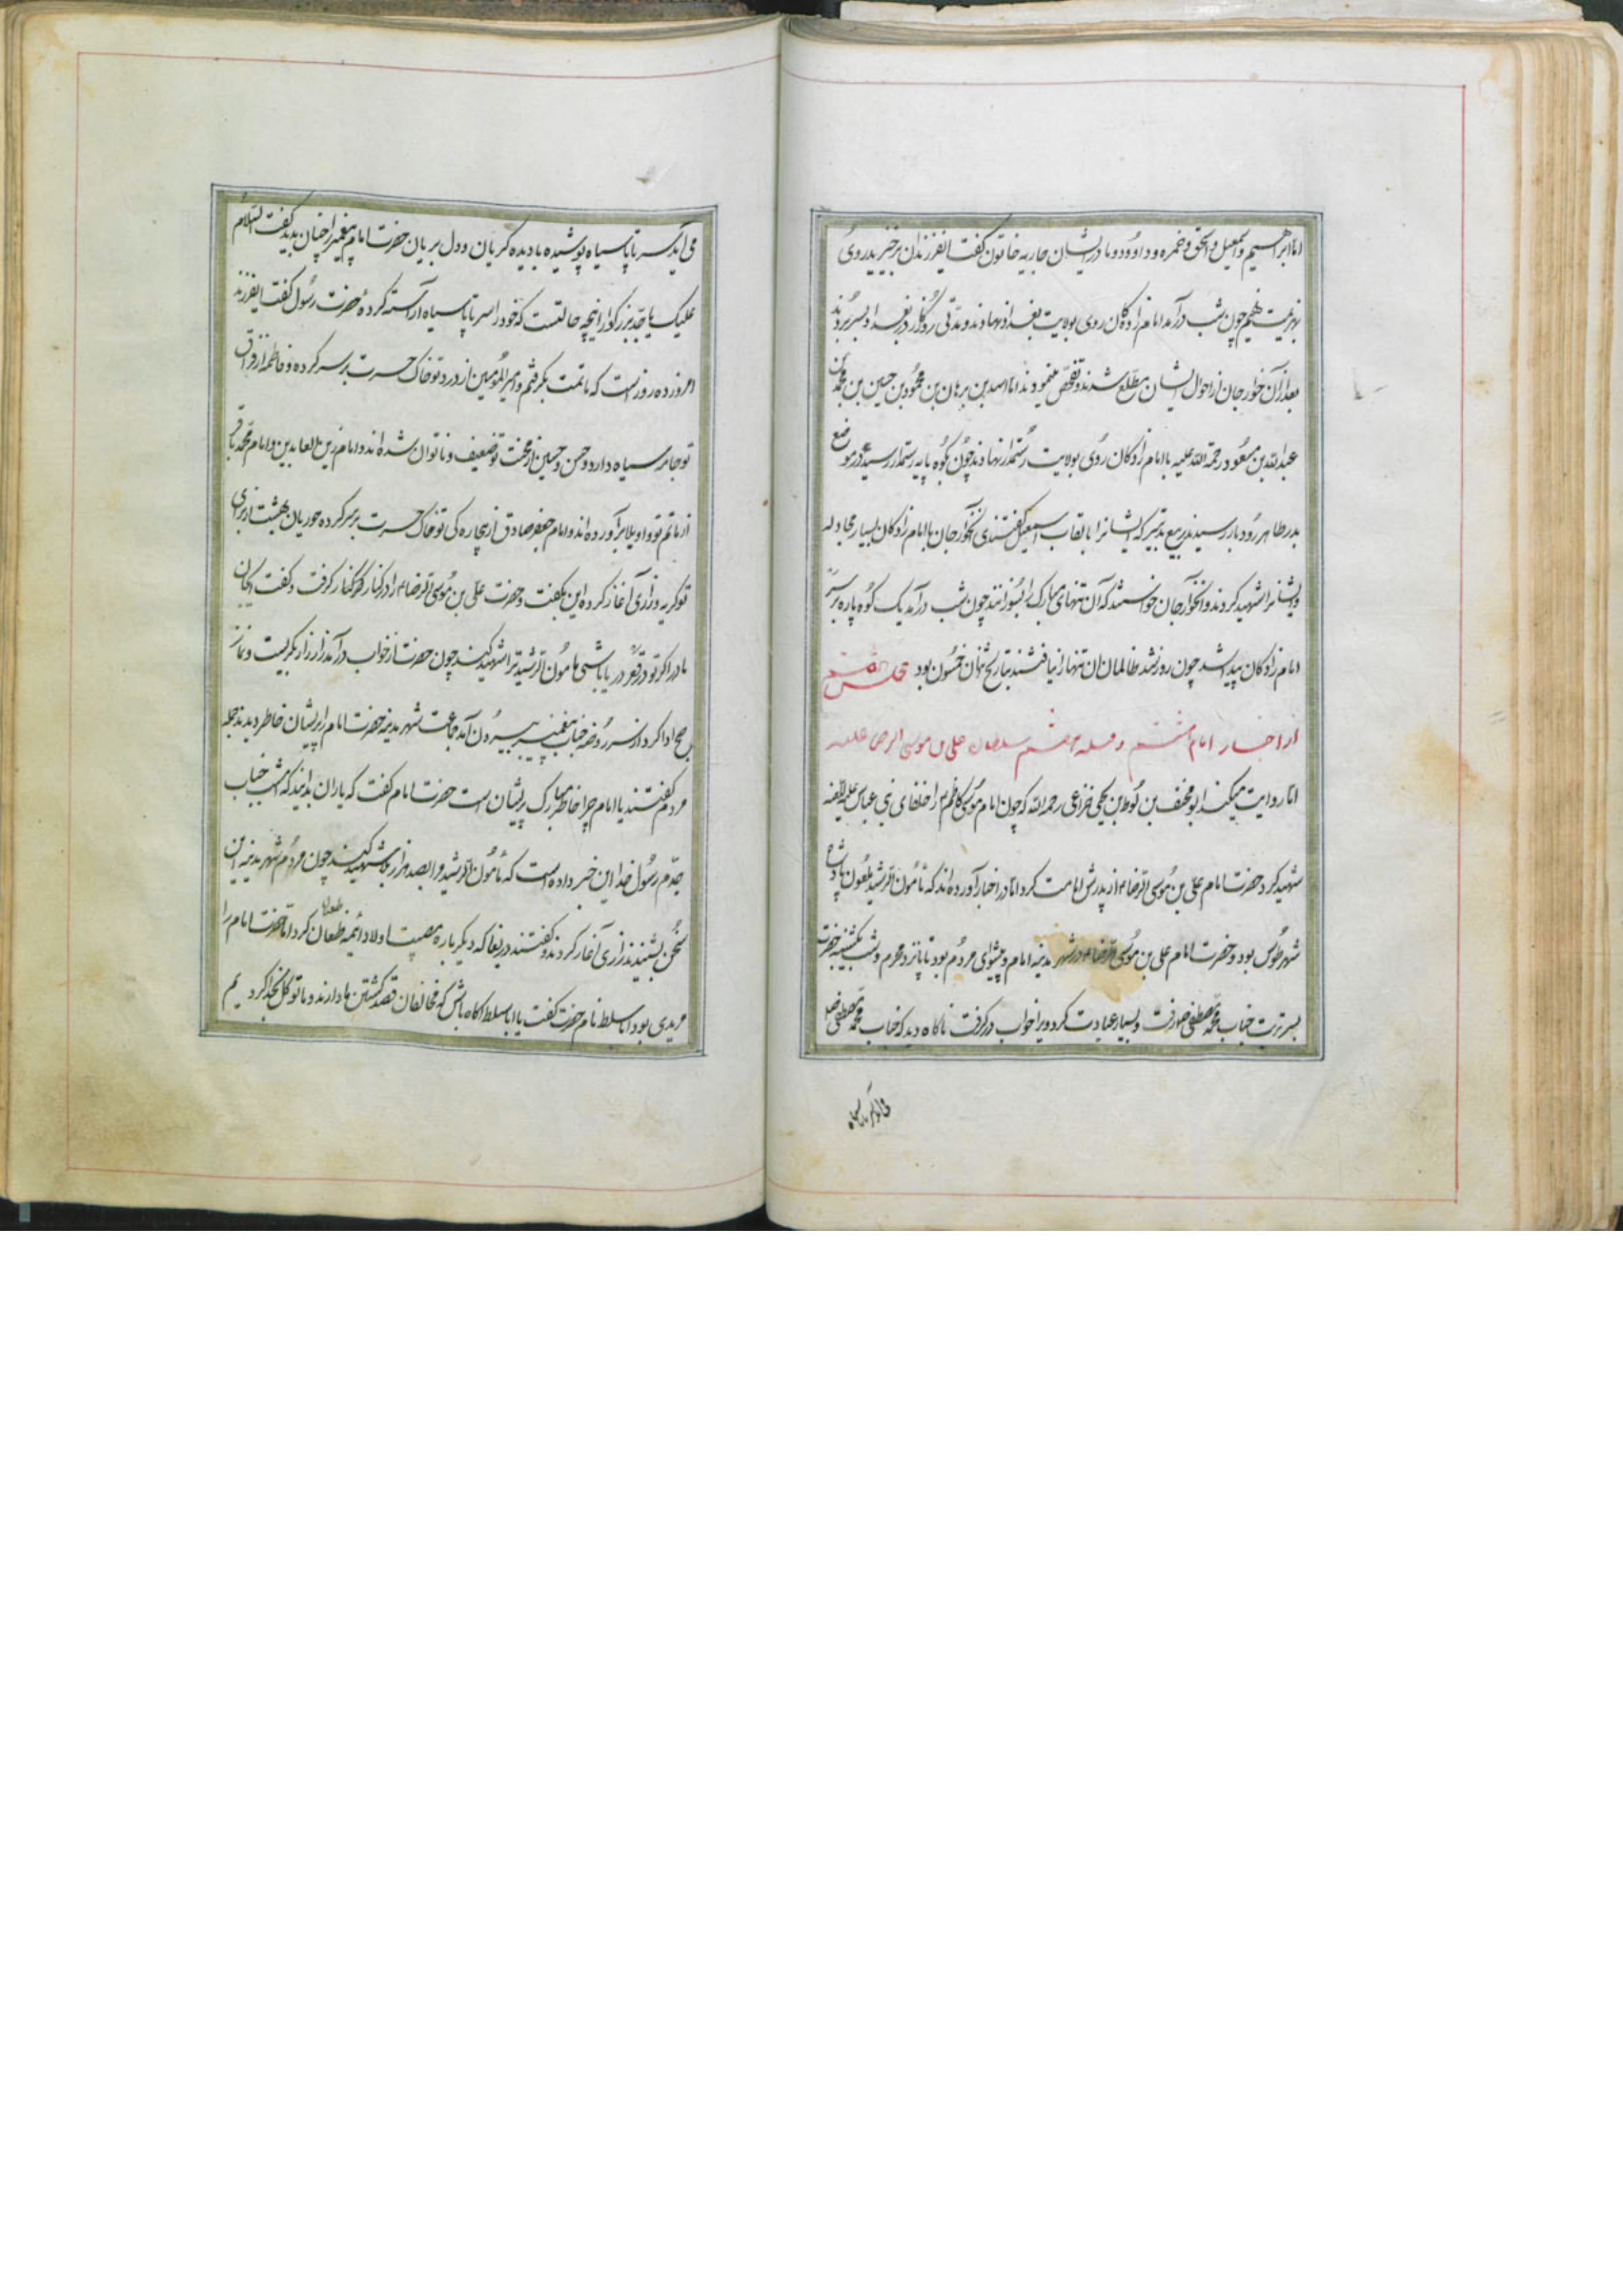 اما ابراهیم و اسمعیل و اسحق و حمزه و داوود و مادر ایشان جاریه خاتون گفت ایفرزندان برخیزید روی
بهزیمت نهیم چون شب درآمد امام زادکان روی بولایت بغداد نهادند و مدتی روزگار در بغداد بسر بردند
بعد از آن خوارجان از احوال ایشان مطلع شدند و تفحص مینمودند اما اسد بن برهان بن محمود بن حسین بن محمد بن
عبدالله بن مسعود رحمة الله علیه با امام زادکان روی بولایت رستمدار نهادند چون بکوه پایه رستمدار رسیدند در موضع
رسیدند که ایشانرا بالقاب اسمعیل گفتندی آنخوارجان با امام زادکان بسیار مجادله
و ایشانرا شهید کردند و آنخوارجان خواستند که آن تنهای مبارک را بسوزانند چون شب درآمد یک کوه پاره بر سر
امام زادکان پیدا شد چون روز شد ظالمان آن تنها را نیافتند بتاریخ ثمان خمسون بود مجلس
از اخبار امام هشتم و قبله هفتم سلطان علی بن موسی الرضا علیه
اما روایت میکند ابو مخنف بن لوط بن یحیی خزاعی رحمه الله که چون امام موسی کاظم را خلفای بنی عباس علیه اللعنه
شهید کرد حضرت امام علی بن موسی الرضا از پدرش امامت کرد اما در اخبار آورده اند که مأمون الرشید ملعون پادشاه
شهر طوس بود و حضرت امام علی بن موسی الرضا در شهر مدینه امام و پیشوای مردم بود تا پانزدهم محرم و شب یکشنبه حضرت
بسر تربت جناب محمد مصطفی رفت و بسیار عبادت کرد ویرا خواب در گرفت ناگاه دید که جناب محمد مصطفی
می آید سر تا پا سیاه پوشیده با دیده گریان و دل بریان حضرت امام پیغمبر را چنان بدید گفت السلام
علیک یا جد بزرگوار اینچه حالتست که خود را سر تا پا سیاه آراسته کرده حضرت رسول گفت ایفرزند
امروز ده روز است که ماتمت بگرفتم و امیر المؤمنین از درد تو خاک حسرت بر سر کرده و فاطمه از فراق
تو جامه سیاه دارد و حسن و حسین از محنت تو ضعیف و ناتوان شده اند و امام زین العابدین و امام محمد باقر
از ماتم تو واویلا برآورده اند و امام جعفر صادق از بیچاره کی تو خاک حسرت بر سر کرده حوریان بهشت از برای
تو گریه و زاری آغاز کرده این بگفت و حضرت علی بن موسی الرضا را در کنار گرفت و گفت ایجان
مادر اگر تو در قعر دریا باشی مامون الرشید ترا شهید کند چون حضرت از خواب درآمد زار زار بگریست و نماز
صبح ادا کرد از سر روضه جناب پیغمبر بیرون آمد جماعت شهر مدینه حضرت امام را پریشان خاطر دیدند جمله
مردم گفتند یا امام چرا خاطر مبارک پریشان است حضرت امام گفت که یاران بدانید که امشب جناب
جدم رسول خدا این خبر داده است که مأمون الرشید مرا بصد هزار جفا شهید کند چون مردم شهر مدینه این
سخن بشنیدند زاری آغاز کردند و گفتند دریغا که دیگر باره مصیبت اولاد ائمه کرد اما حضرت امام را
مریدی بود اباسلط نام حضرت گفت یا اباسلط اکاه باش که مخالفان قصد کشتن ما دارند و ما توکل بخدا کردیم